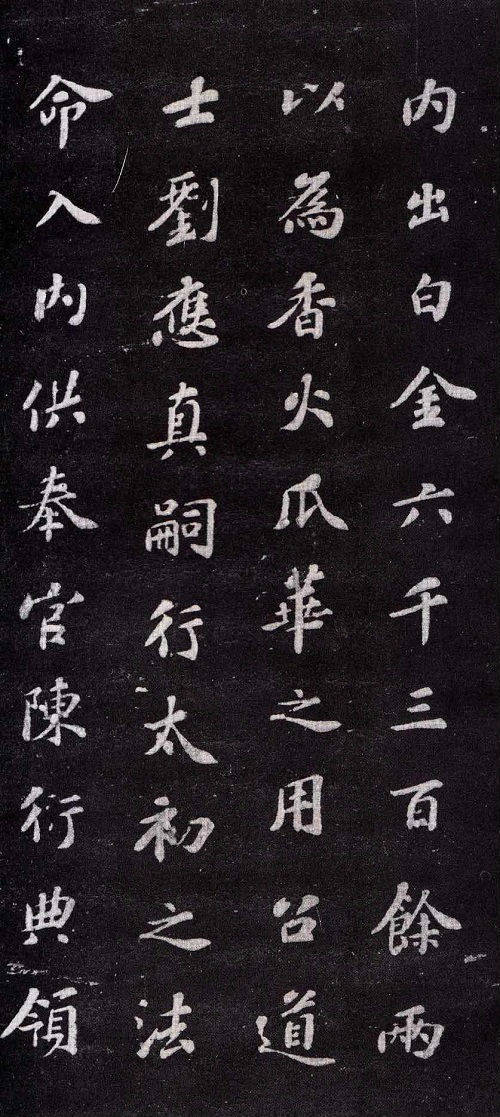 内出白金六千三百餘兩
以為香火瓜華之用召道
士劉應真嗣行太初之法
命入内供奉官陳衍典領